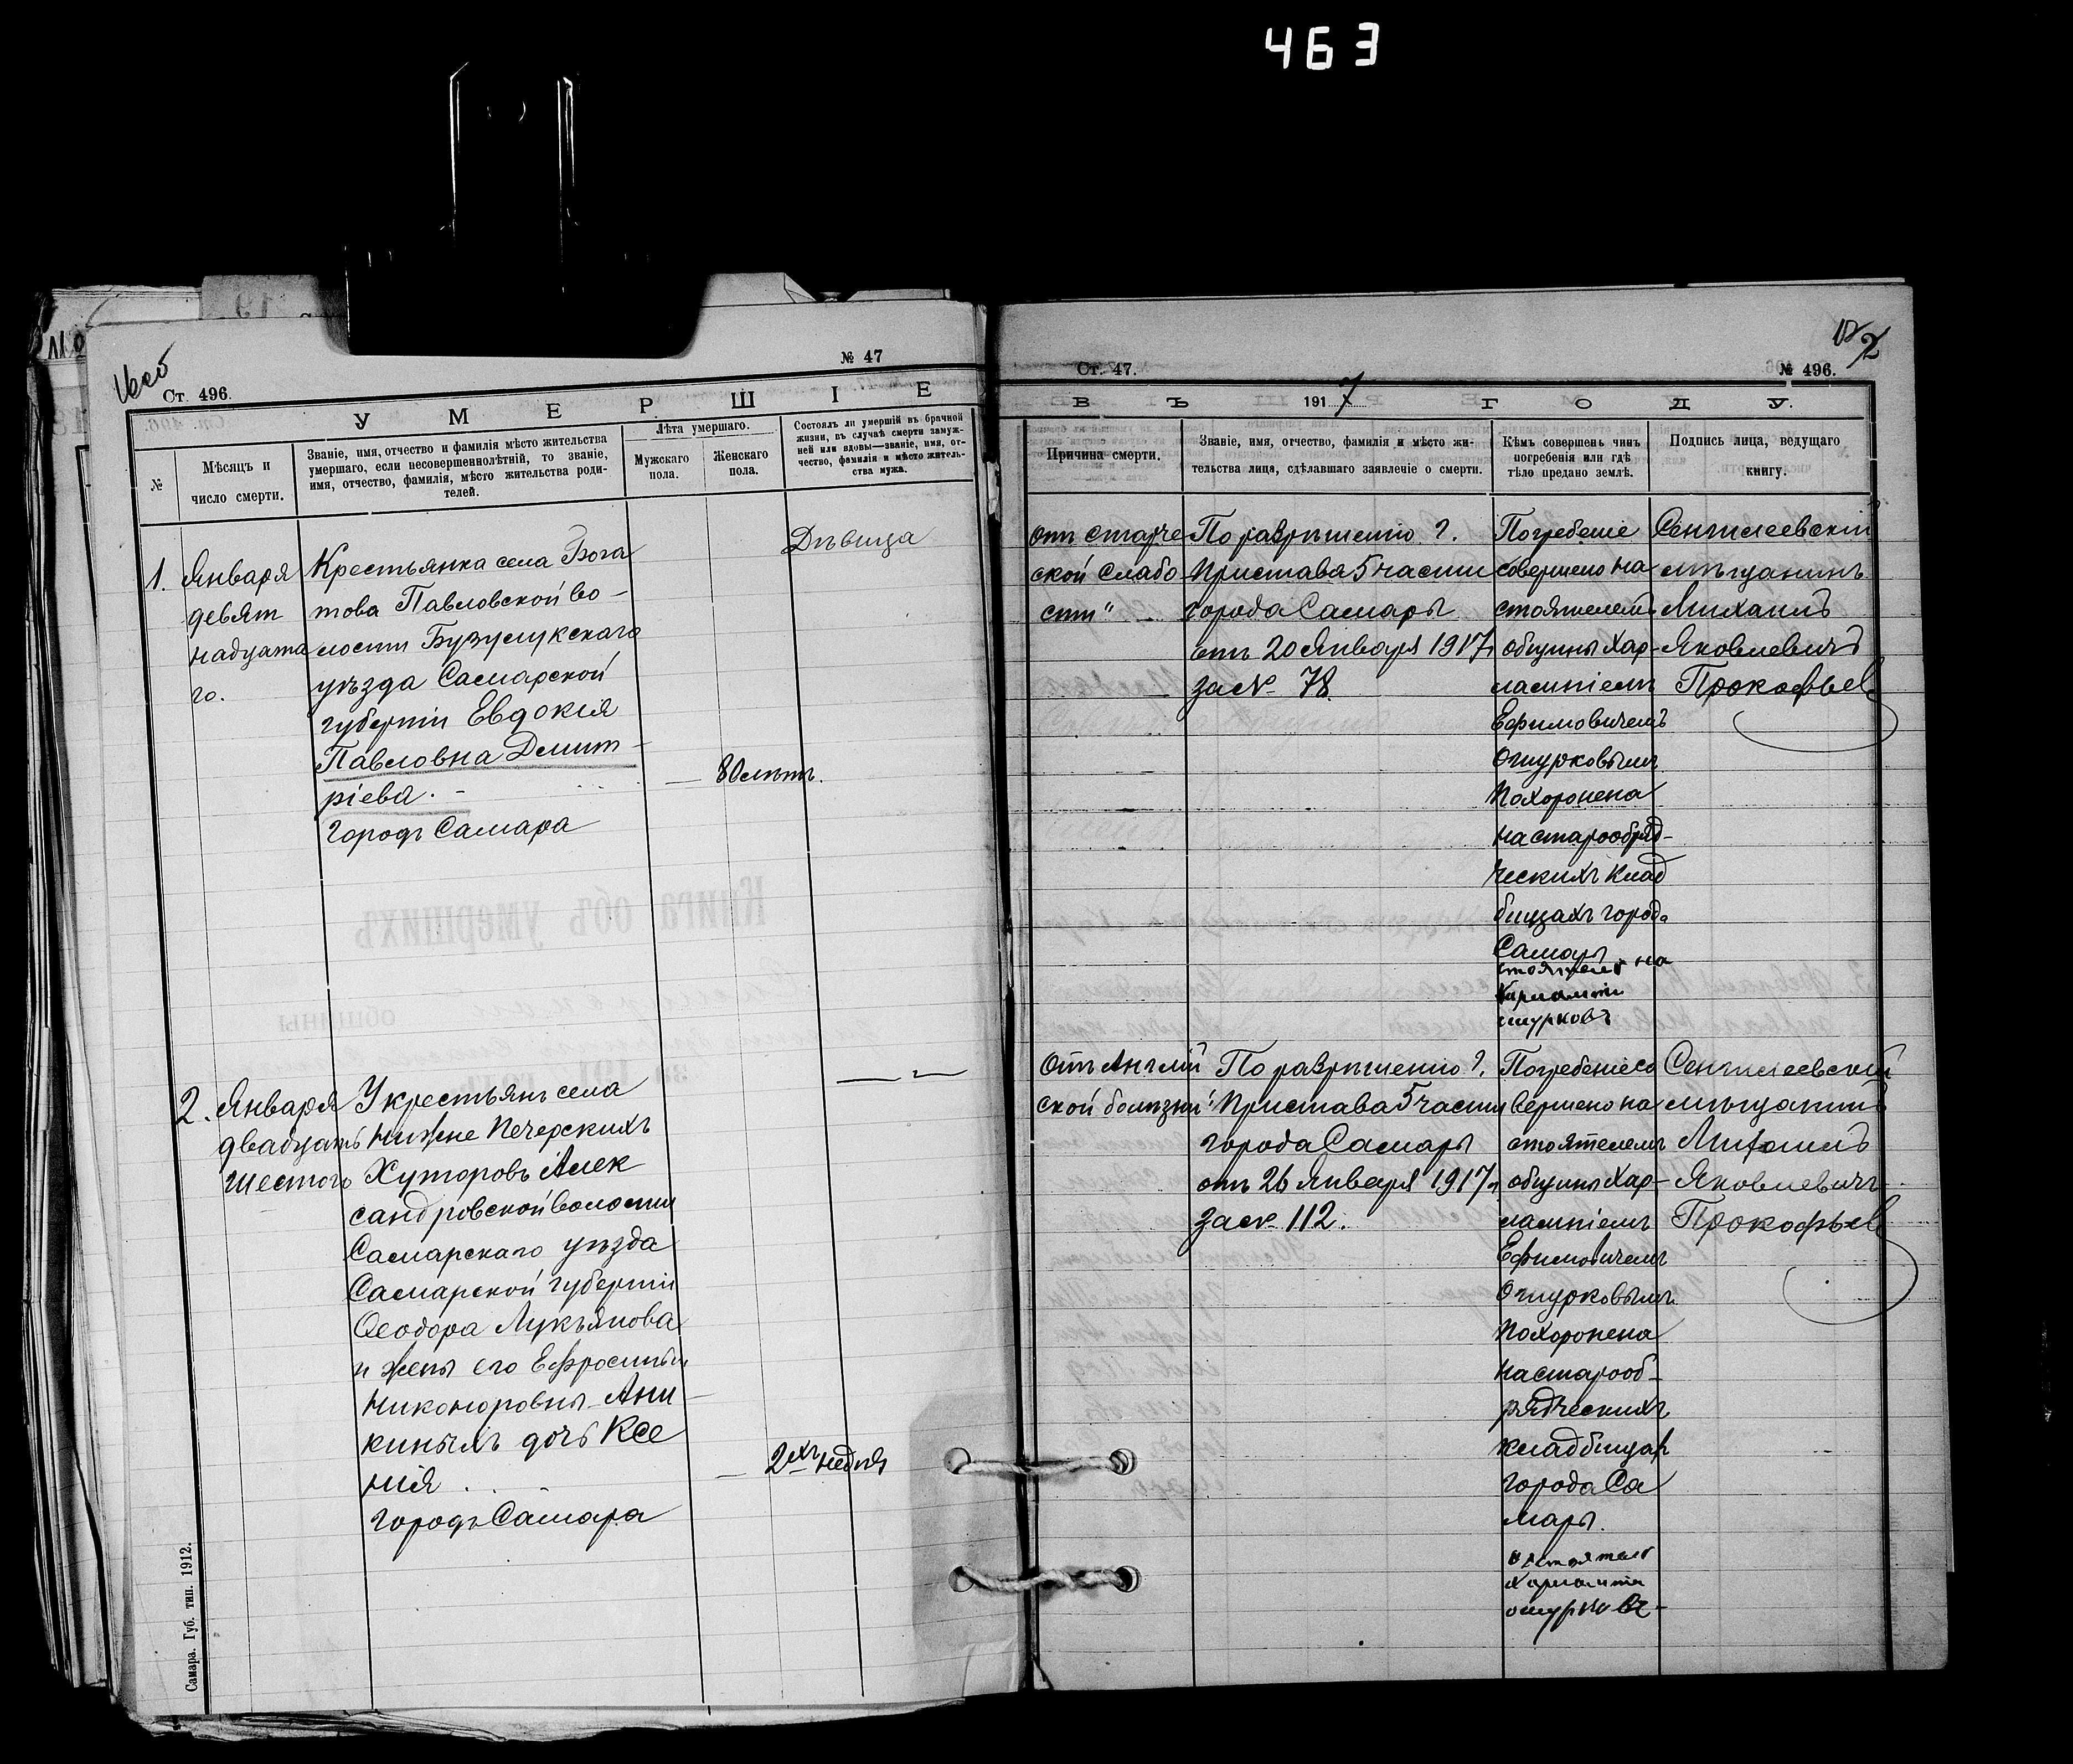 463
№ 47
Ст. 496.
УМЕРШІЕ
№
Мѣсяцъ и
число смерти.
Званіе, имя, отчество и фамилія мѣсто жительства
умершаго, если несовершеннолѣтній, то званіе,
имя, отчество, фамилія, мѣсто жительства роди-
телей.
Лѣта умершаго.
Мужскаго
пола.
Женскаго
пола.
Состоялъ ли умершій въ брачной
жизни, въ случаѣ смерти замуж-
ней или вдовы—званіе, имя, от-
чество, фамилія и мѣсто житель-
ства мужа.
1.
Января
девят
надцата
го.
Крестьянка села Бога
това Павловской во-
лости Бузулукскаго
уѣзда Самарской
губерніи Евдокія
Павловна Дмит-
ріева.
городъ Самара
80 лѣтъ.
Дѣвица
2.
Января
двадцать
шестого
У крестьянъ села
Нижне Печерскихъ
Хуторовъ Алек
сандровской волости
Самарскаго уѣзда
Самарской губерніи
Ѳеодора Лукьянова
и жены его Ефросиньи
Никоноровны Ани-
киныхъ дочь Ксе
нія
городъ Самара
2хъ недѣля
Самара. Губ. тип. 1912.
2
Ст. 47.
№ 496.
ВЪ 1917 ГОДУ.
Причина смерти.
Званіе, имя, отчество, фамилія и мѣсто жи-
тельства лица, сдѣлавшаго заявленіе о смерти.
Кѣмъ совершенъ чинъ
погребенія или гдѣ
тѣло предано землѣ.
Подпись лица, ведущаго
книгу.
отъ старче
ской слабо
сти"
По разрѣшенію г.
Пристава 5 части
города Самары
отъ 20 Января 1917 г
за № 78
Погребеніе
совершено на
стоятелемъ
общины Хар-
лампіемъ
Ефимовичемъ
Ошурковымъ
похоронена
на старообряд-
ческихъ клад
бищахъ города
Самары
на
стоятель
Харлампи
ошурковъ
Сенгилеевскій
мѣщанинъ
Михаилъ
Яковлевичъ
Прокофьев
Отъ Англій
ской болѣзни
По разрѣшенію г.
Пристава 5 части
города Самары
отъ 26 Января 1917 г
за № 112.
Погребеніе со
вершено на
стоятелемъ
общины Хар-
лампіемъ
Ефимовичемъ
Ошурковымъ
похоронена
на старооб-
рядческихъ
кладбищах
города Са
мары.
настоятель
Харлампи
ошурковъ
Сенгилеевскій
мѣщанинъ
Михаилъ
Яковлевичъ
Прокофьев